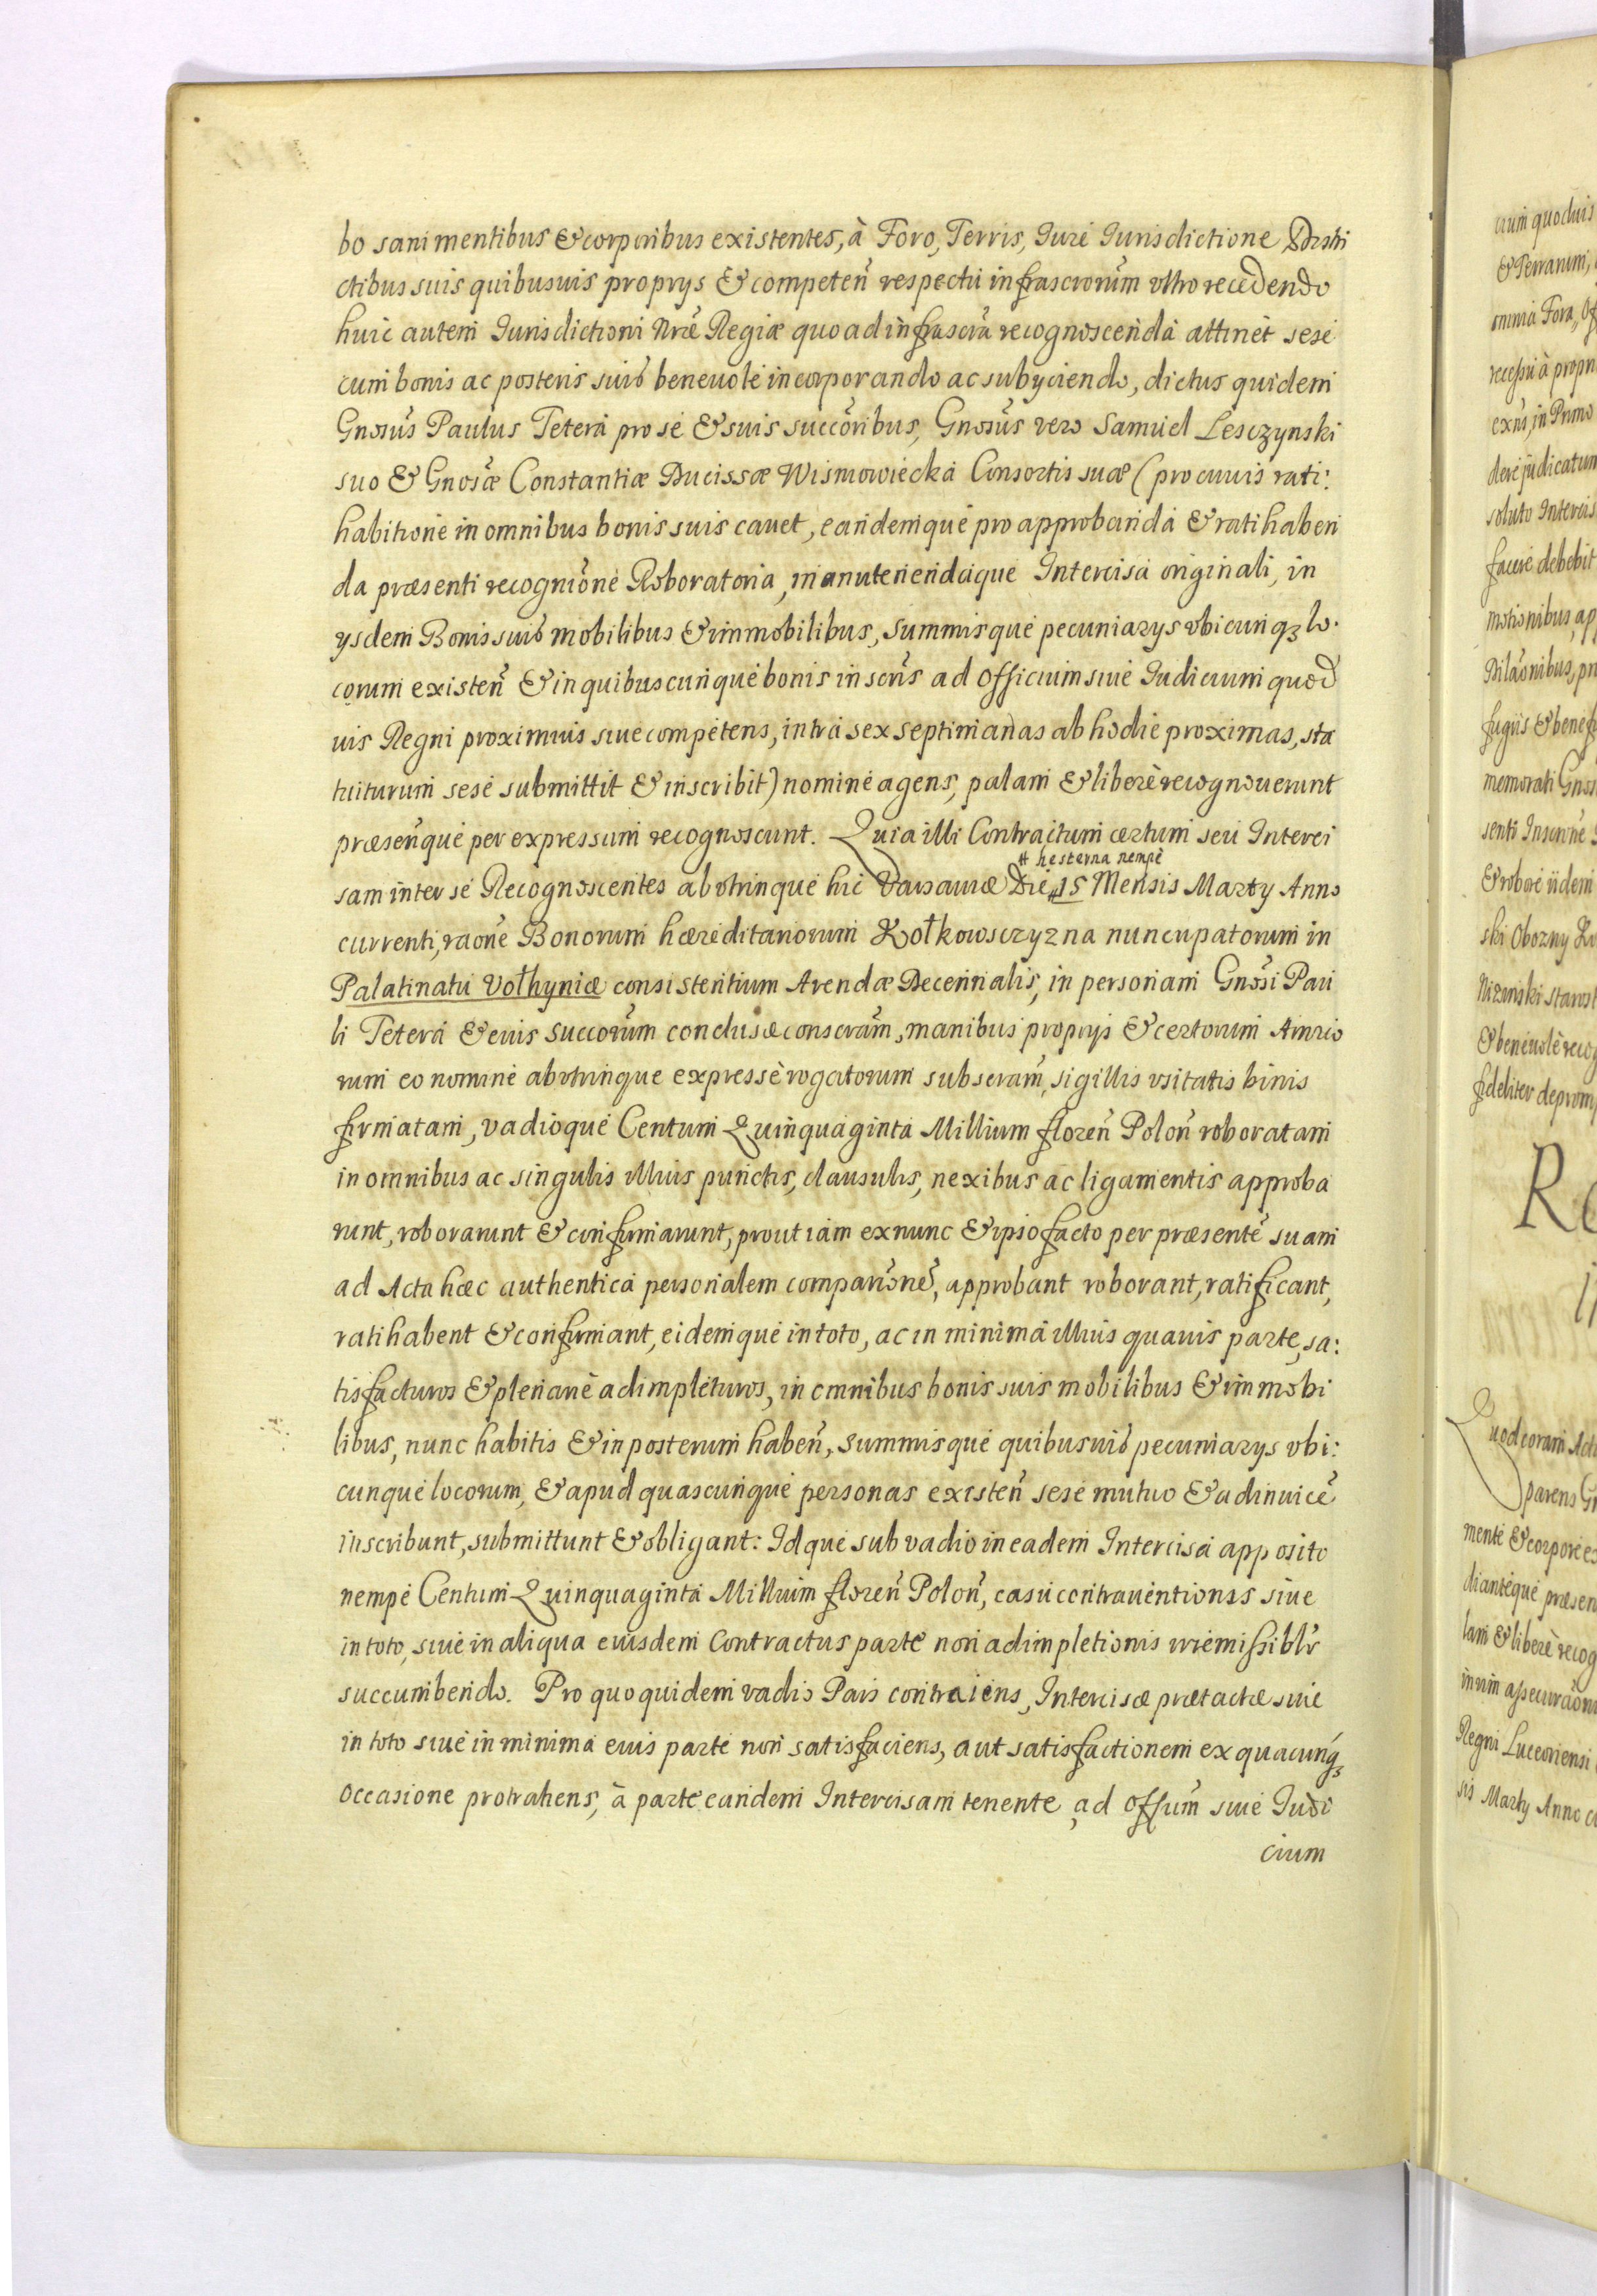 bo sani mentibus & corporibus existentes, à Foro, Terris, Iure Iurisdictione Distri
ctibus suis quibusuis proprys & competen̄ respectu infrascrorum̄ vltro recedendo
huic autem Iurisdictioni Nr̄e Regiæ quoad infrascr̄a recognoscenda attinet sese
cum bonis ac posteris suis beneuole incorporando ac subyciendo, dictus quidem
Gnosūs Paulus Tetera pro se & suis succōribus, Gnosūs vero Samuel Lesczynski
suo & Gnosǣ Constantiæ Ducissæ Wisniowiecka Consortis suæ (pro cuius rati:
habitione in omnibus bonis suis cauet, eandemque pro approbanda & ratihaben
da præsenti recogniōne Roboratoria, manutenendaque Intercisa originali, in
ysdem Bonis suis mobilibus & immobilibus, summisque pecuniarys vbicunqȝ lo.
corum existen̄ & in quibuscunque bonis inscr̄is ad officium siue Iudicium quod
uis Regni proximius siue competens, intra sex septimanas ab hodie proximas, sta
tuiturum sese submittit & inscribit) nomine agens, palam & liberè recognouerunt
præsen̄que per expressum recognoscunt. Quia illi Contractum certum seu Interci
sam inter se Recognoscentes abvtrinque hic Varsauiæ Die # 15 Mensis Marty Anno
# hesterna nempe
currenti, raōne Bonorum hæreditariorum Kołkowsczyzna nuncupatorum in
Palatinatu Vołhyniæ consistentium Arendæ Decennalis, in personam Gnosī Pau
li Tetera & eius succorūm conclusæ conscram̄, manibus proprys & certorum Amico
rum eo nomine abvtrinque expressè rogatorum subscram̄, sigillis vsitatis binis
firmatam, vadioque Centum Quinquaginta Millium floren̄ Polon̄ roboratam
in omnibus ac singulis illius punctis, clausulis, nexibus ac ligamentis approba
runt, roborarunt & confirmarunt, prout iam exnunc & ipso facto per præsente̅ suam
ad Acta hæc authentica personalem compariōne̅, approbant roborant, ratificant,
ratihabent & confirmant, eidemque in toto, ac in minima illius quauis parte, sa:
tisfacturos & plenariè adimpleturos, in omnibus bonis suis mobilibus & immobi
libus, nunc habitis & in posterum haben̄, summisque quibusuis pecuniarys vbi:
cunque locorum, & apud quascunque personas existen̄ sese mutuo & adinuice̅
inscribunt, submittunt & obligant: Idque sub vadio in eadem Intercisa apposito
nempe Centum Quinquaginta Millium floren̄ Polon̄, casu contrauentionis siue
in toto, siue in aliqua eiusdem Contractus parte non adimpletionis irremissiblr̄
succumbendo. Pro quo quidem vadio Pars contraiens, Intercisæ prætactæ siue
in toto siue in minima eius parte non satisfaciens, aut satisfactionem ex quacunqȝ
occasione protrahens, à parte eandem Intercisam tenente, ad offum̄ siue Iudi
cium